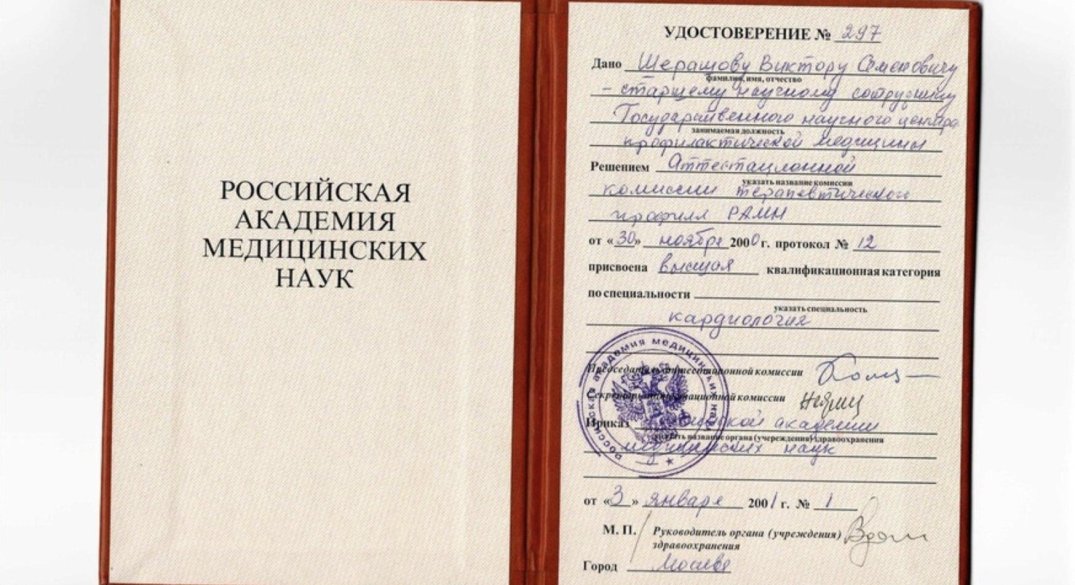 РОССИЙСКАЯ
АКАДЕМИЯ
МЕДИЦИНСКИХ
НАУК
УДОСТОВЕРЕНИЕ № 297
Дано Шерашову Виктору Семеновичу
фамилия, имя, отчество
- старшему научному сотруднику
Государственного научного центра
занимаемая должность
профилактической медицины
Решением Аттестационной
указать название комиссии
комиссии терапевтического
профиля РАМН
от «30» ноября 2000 г. протокол № 12
присвоена высшая квалификационная категория
по специальности
указать специальность
кардиология
Председатель аттестационной комиссии
Секретарь аттестационной комиссии
Приказ Российской академии
указать название органа (учреждения) здравоохранения
медицинских наук
российская академия медицинских наук
от «3» января 2001 г. № 1
М. П. Руководитель органа (учреждения)
здравоохранения
Город Москва